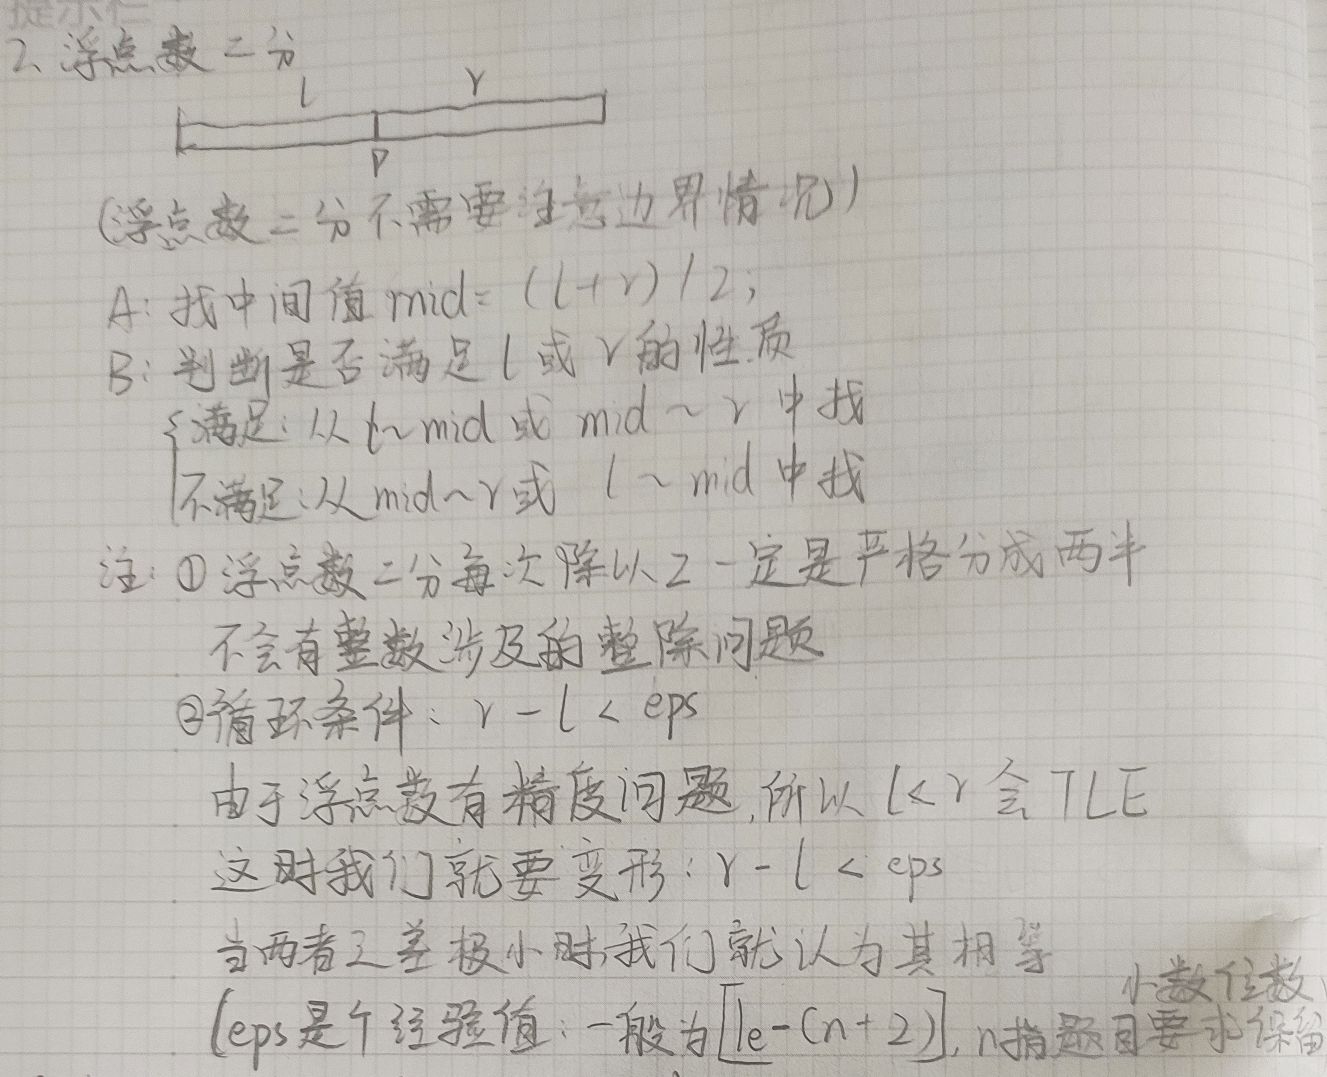 提示栏
2、浮点数二分
l r
P
(浮点数二分不需要注意边界情况)
A: 找中间值 mid = (l+r)/2;
B: 判断是否满足 l 或 r 的性质
{满足: 从 l~mid 或 mid~r 中找
不满足: 从 mid~r 或 l~mid 中找
注: ① 浮点数二分每次除以2一定是严格分成两半
不会有整数涉及的整除问题
②循环条件: r-l < eps
由于浮点数有精度问题,所以 l<r 会 TLE
这时我们就要变形: r-l < eps
当两者之差极小时,我们就认为其相等
小数位数
(eps是个经验值: 一般为[1e-(n+2)], n指题目要求保留